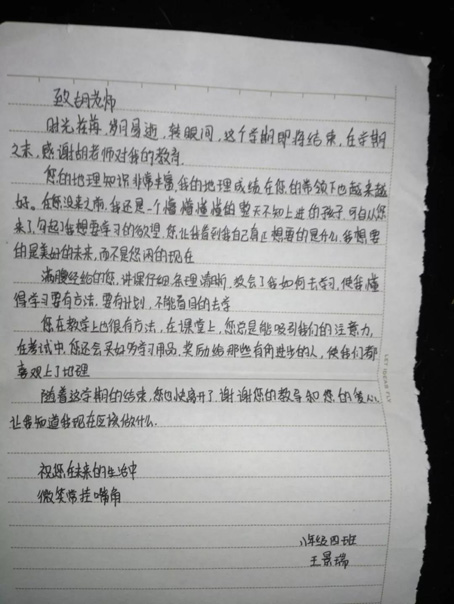 致胡老师
时光荏苒,岁月易逝,转眼间,这个学期即将结束,在学期
之末,感谢胡老师对我的教育.
您的地理知识非常丰富,我的地理成绩在您的带领下也越来越
好。在您没来之前,我还是一个懵懵懂懂的整天不知上进的孩子,可自从您
来了,勾起了我想要学习的欲望,您让我看到我自己真正想要的是什么,我想要
的是美好的未来,而不是您内的现在
满腹经纶的您,讲课仔细,条理清晰,教会了我如何去学习,使我懂
得学习要有方法,要有计划,不能盲目的去学
您在教学上也很有方法,在课堂上,您总是能吸引我们的注意力,
在考试中,您还会买好多学习用品,奖励给那些有向进步的人,使我们都
喜欢上了地理
随着这学期的结束,您也快离开了,谢谢您的教导和您的爱心,
让我知道我现在应该做什么.
祝您在未来的生活中
微笑常挂嘴角
八年级四班
王景瑞